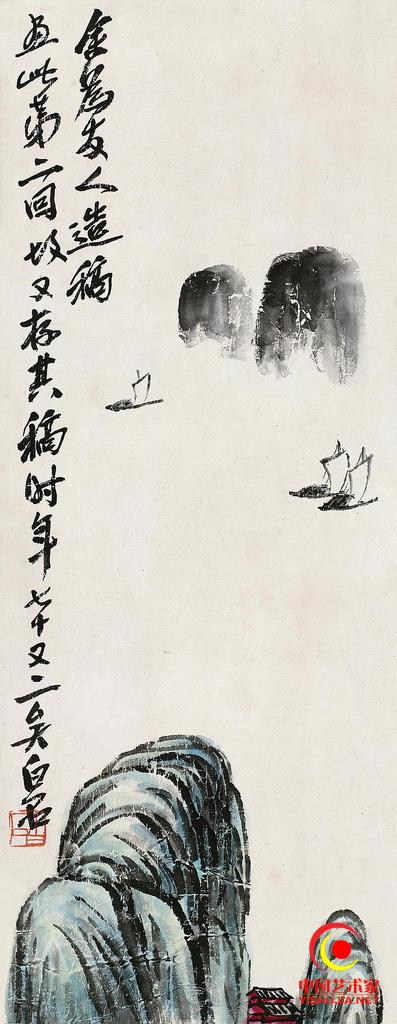 余為友人造稿
画此第二回故又存其稿时年七十又二矣白石
中国艺术家
YISHUJIA.NET